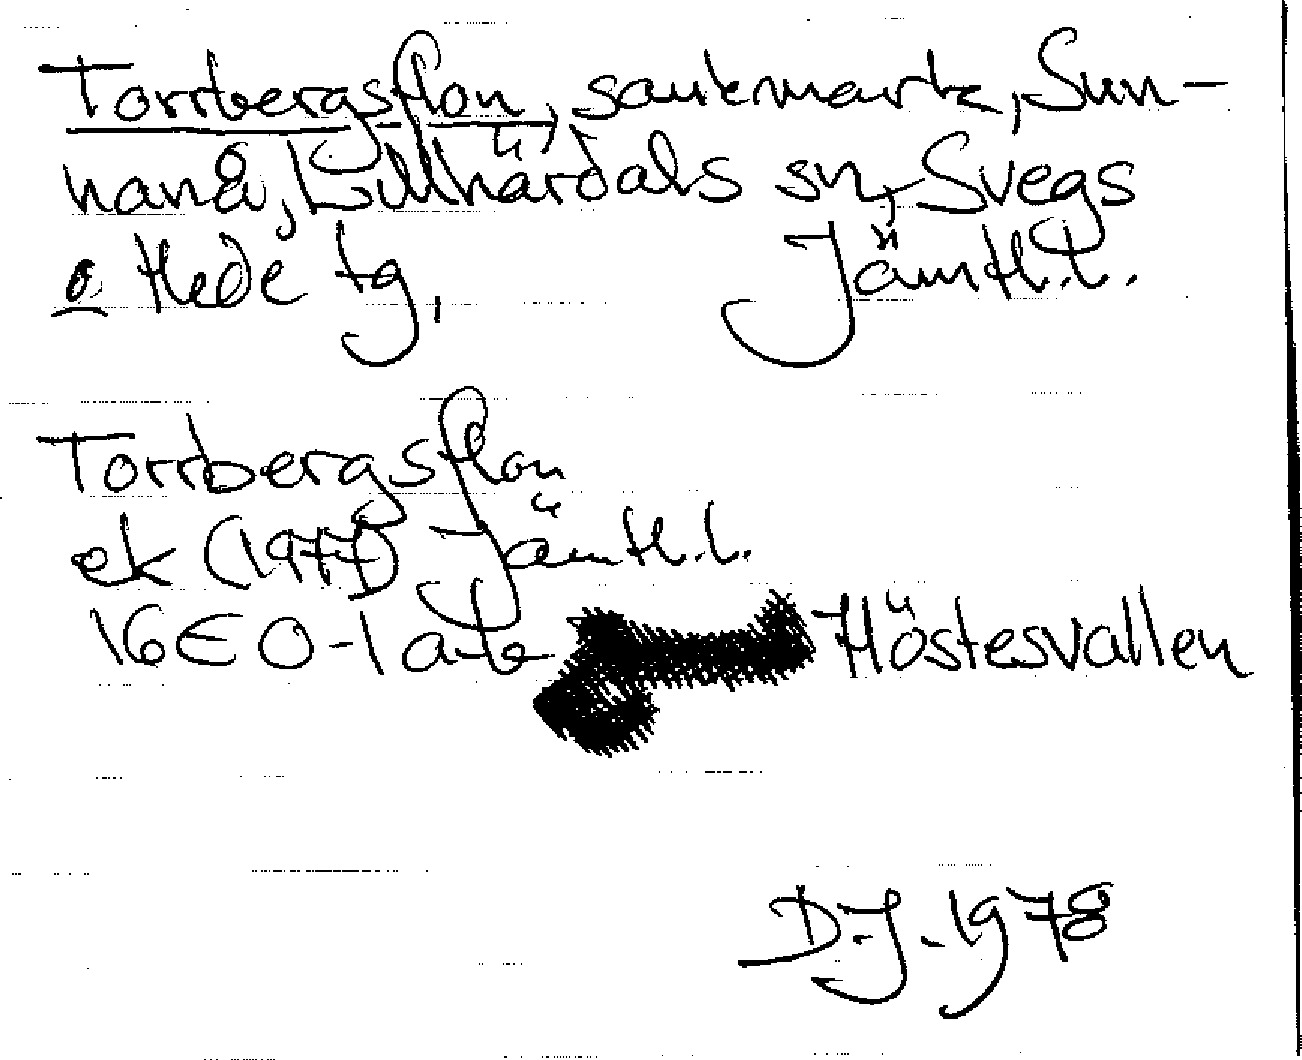 Torrbergsflon, sankmark, Sun-
nanå, Lillhärdals sn, Svegs
o. Hede tg, Jämtl.l.
Torrbergsflon
ek (1977) Jämtl.l.
16E 0-1 a-b Höstesvallen
D.J. 1978